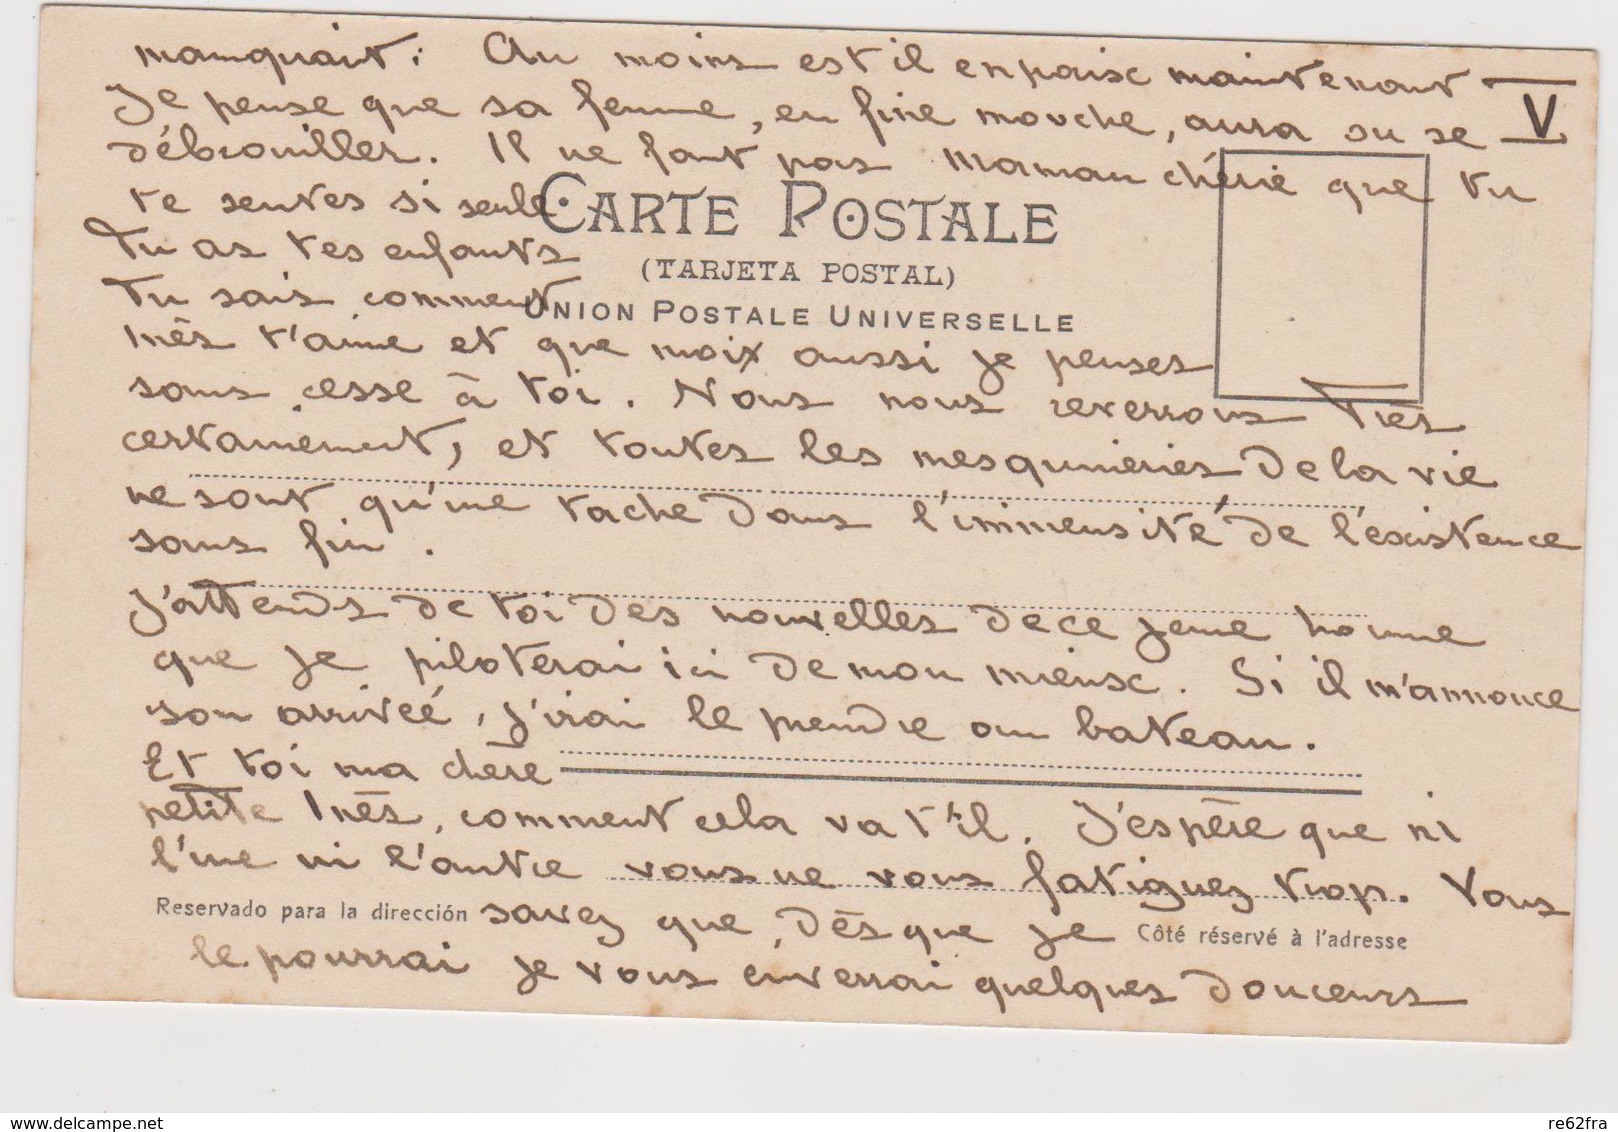 manquait. Au moins est il en paix maintenant
Je pense que sa femme, en fine mouche, aura su se V
débrouiller. Il ne faut pas maman chérie que tu
te sentes si seule
CARTE POSTALE
Tu as tes enfants
(TARJETA POSTAL)
Tu sais comment
UNION POSTALE UNIVERSELLE
Inès t'aime et que moi aussi je penses
sans cesse à toi. Nous nous reverrons Très
certainement, et toutes les mesquineries de la vie
ne sont qu'une tache dans l'immensité de l'existence
sans fin.
J'attends de toi des nouvelles de ce jeune homme
que je piloterai ici de mon mieux. Si il m'annonce
son arrivée, j'irai le prendre au bateau.
Et toi ma chère
petite Inès, comment cela va t'il. J'espère que ni
l'une ni l'autre vous ne vous fatiguez trop. Vous
Reservado para la dirección savez que, dès que je Côté réservé à l'adresse
le pourrai je vous enverrai quelques douceurs
www.delcampe.net
re62fra